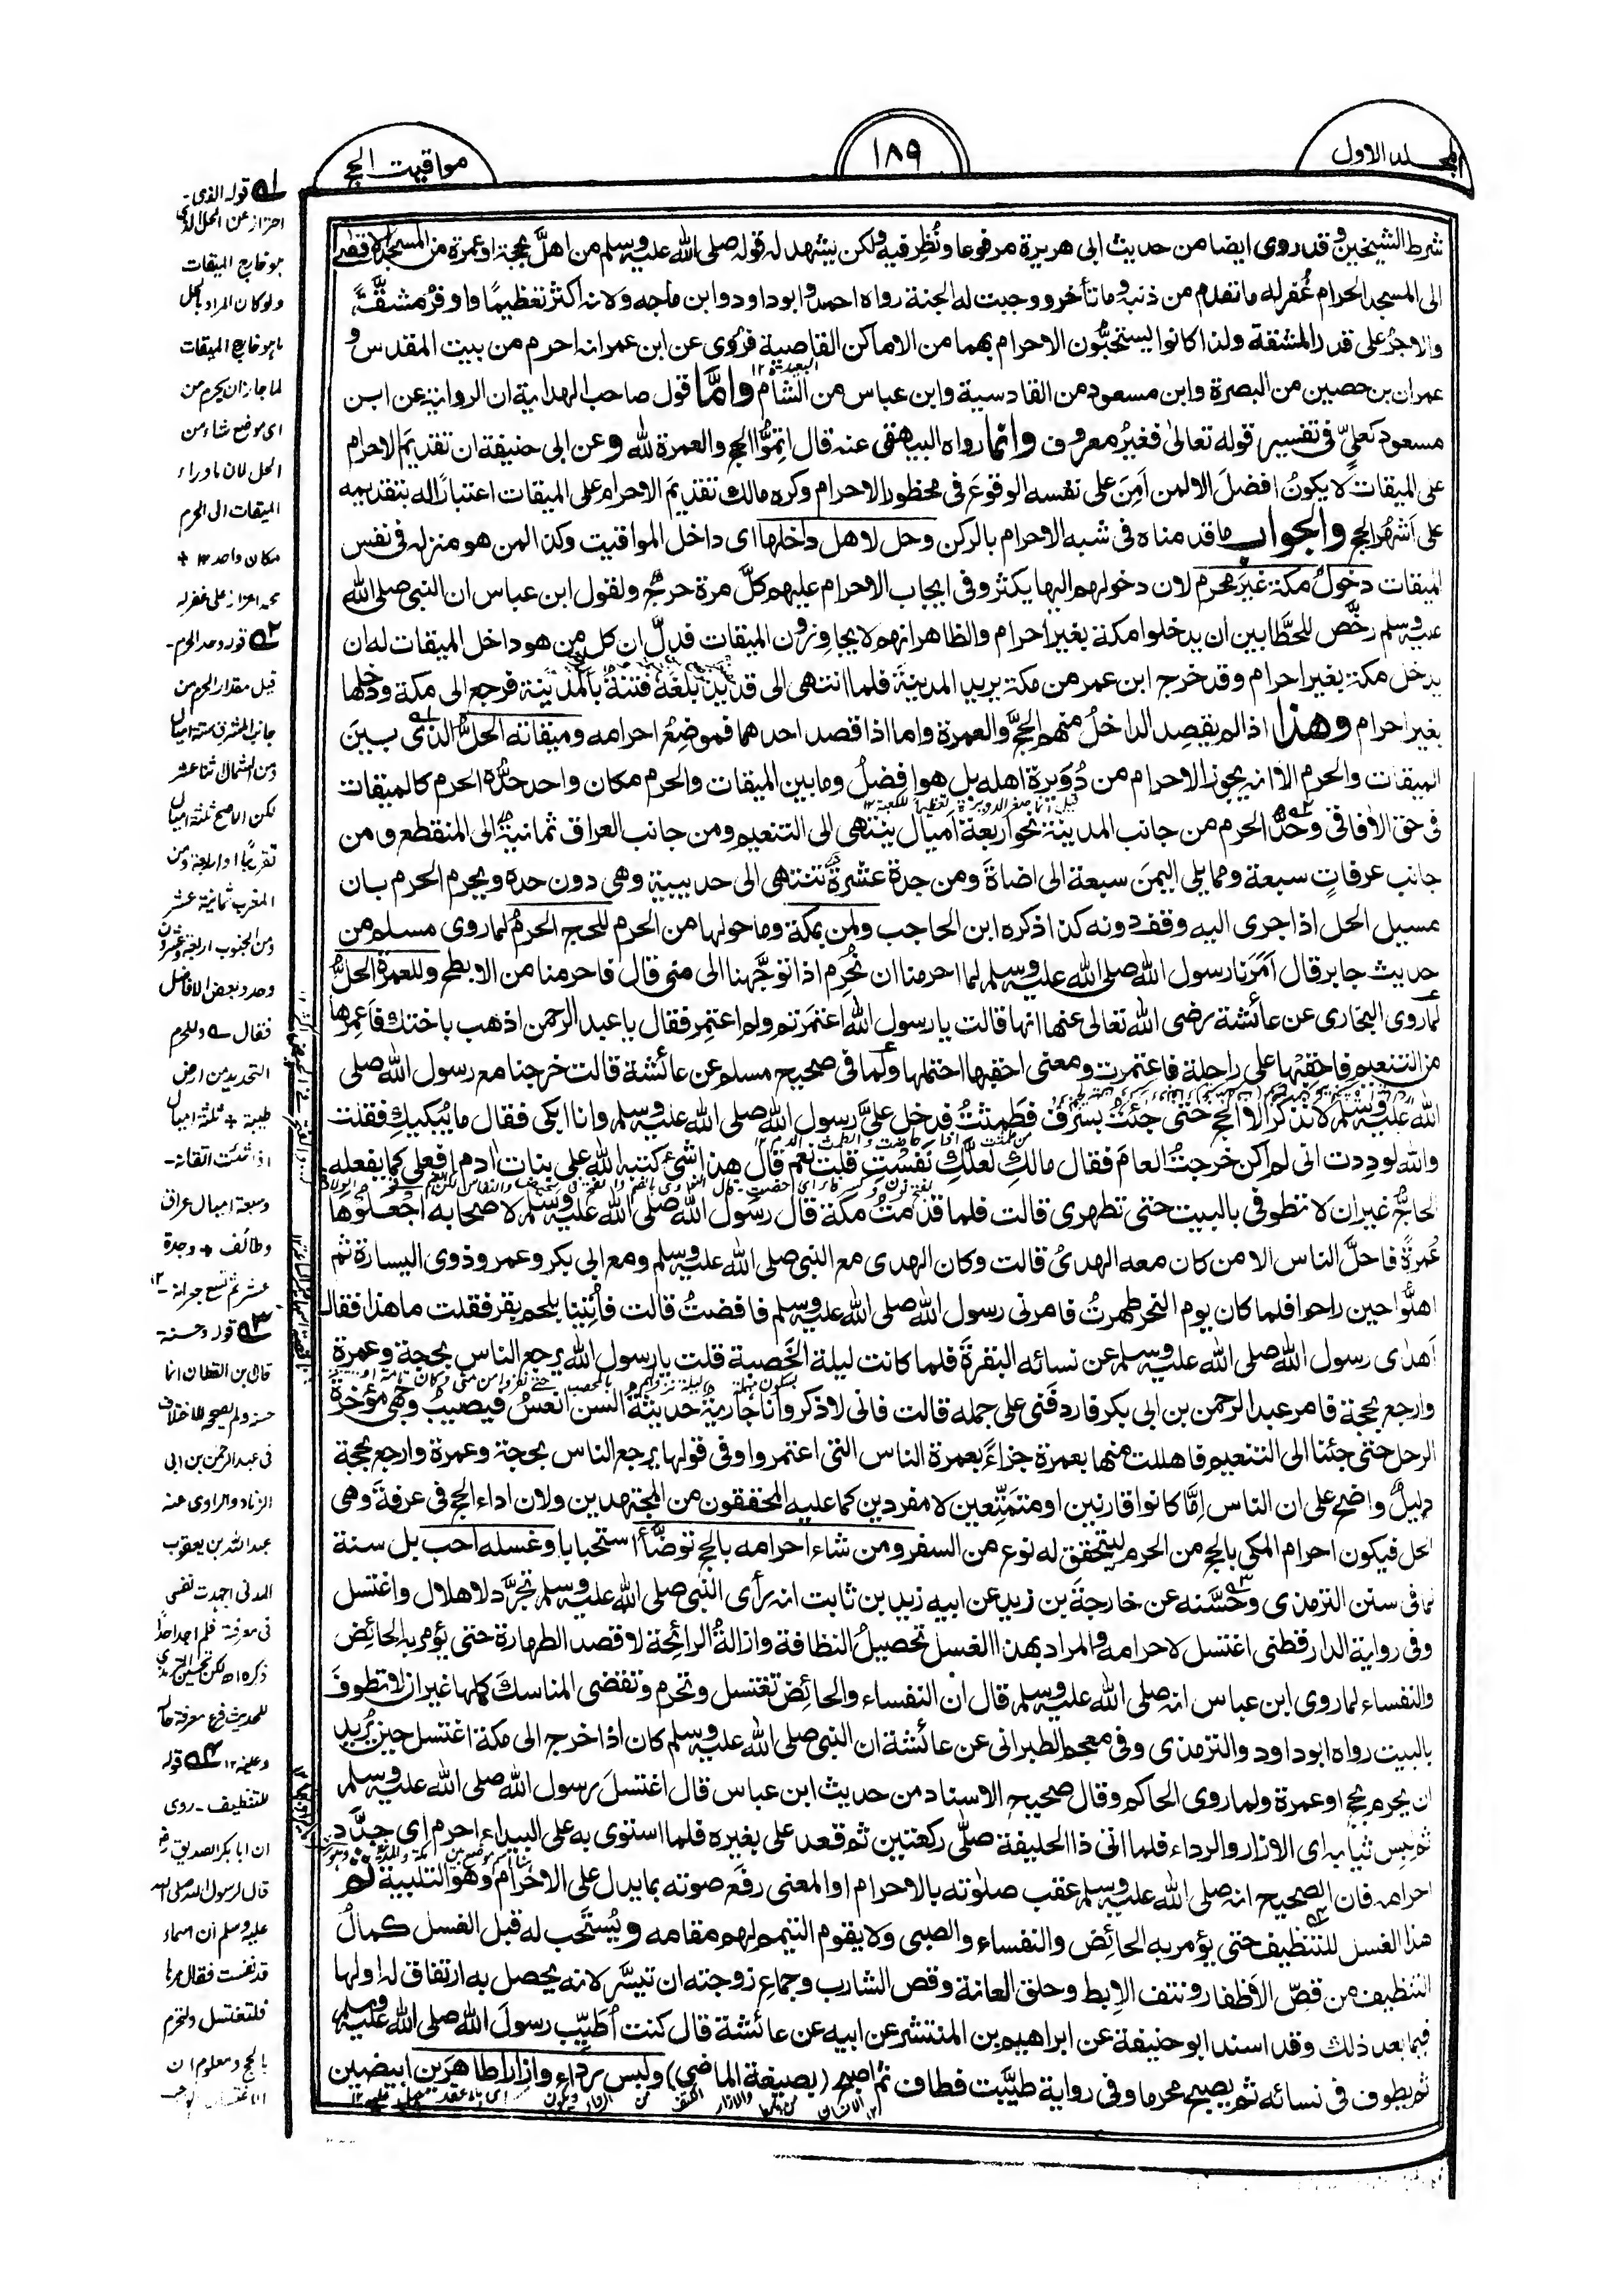 المجلد الاول
١٨٩
مواقيت الحج
شرط الشيخين وقد روى ايضا من حديث ابى هريرة مرفوعا ونُظِر فيه ولكن يشهد له قوله صلى الله عليه وسلم من اهلَّ بحجة او عمرة من المسجد الاقصى
الى المسجد الحرام غُفر له ما تقدم من ذنبه وما تأخر ووجبت له الجنة رواه احمد وابوداود وابن ماجه ولانه اكثر تعظيمًا واوفرُ مشقَّةً
والاجرُ على قدر المشقة ولذا كانوا يستحبُّون الاحرام بهما من الاماكن القاصية فرُوى عن ابن عمر انه احرم من بيت المقدس و
عمران بن حصين من البصرة وابن مسعود من القادسية وابن عباس من الشام وامَّا قول صاحب الهداية ان الرواية عن ابن
مسعود كعلىٍّ فى تفسير قوله تعالىٰ فغيرُ معروف وانما رواه البيهقى عنه قال اتِمُّوا الحج والعمرة لله وعن ابى حنيفة ان تقديمَ الاحرام
على الميقات لا يكونُ افضلَ الا لمن اَمِنَ على نفسه الوقوعَ فى محظور الاحرام وكره مالك تقديمَ الاحرام على الميقات اعتباراً له بتقديمه
على اشهُر الحج والجواب ما قدمناه فى شبه الاحرام بالركن وحل لاهل داخلها اى داخل المواقيت وكذا لمن هو منزله فى نفس
الميقات دخولُ مكة غيرَ محرم لان دخولهم اليها يكثر وفى ايجاب الاحرام عليهم كلَّ مرة حرجٌ ولقول ابن عباس ان النبى صلى الله
عليه وسلم رخَّص للحطَّابين ان يدخلوا مكة بغير احرام والظاهر انهم لا يجاوزون الميقات فدلَّ ان كل من هو داخل الميقات له ان
يدخل مكة بغير احرام وقد خرج ابن عمر من مكة يريد المدينة فلما انتهى الى قديد بلغه فتنةٌ بالمدينة فرجع الى مكة ودخلها
بغير احرام وهذا اذا لم يقصِد الداخلُ منهم الحجَّ والعمرة واما اذا قصد احدهما فموضِعُ احرامه وميقاته الحلُّ الذى بين
الميقات والحرم الا انه يجوز الاحرام من دُوَيرة اهله بل هو افضلُ وما بين الميقات والحرم مكان واحد حدُّه الحرم كالميقات
فى حق الافاقى وحدُّ الحرم من جانب المدينة نحو اربعة اميال ينتهى الى التنعيم ومن جانب العراق ثمانيةٌ الى المنقطع ومن
جانب عرفاتٍ سبعة ومما يلى اليمنَ سبعة الى اضاةَ ومن جدة عشرةٌ تنتهى الى حديبية وهى دون حده ويحرم الحرم بان
مسيل الحل اذا جرى اليه وقف دونه كذا ذكره ابن الحاجب ولمن بمكة وما حولها من الحرم للحج الحرمُ لما روى مسلم من
حديث جابر قال اَمَرَنا رسول الله صلى الله عليه وسلم لما احرمنا ان نُحرِم اذا توجَّهنا الى منى قال فاحرمنا من الابطح وللعمرة الحلُّ
لما روى البخارى عن عائشة رضى الله تعالى عنها انها قالت يا رسول الله اعتمَرتم ولم اعتمِر فقال يا عبد الرحمن اذهب باختك فاَعمِرها
من التنعيم فاحقبها على راحلة فاعتمرت ومعنى احقبها احتملها ولما فى صحيح مسلم عن عائشة قالت خرجنا مع رسول الله صلى
الله عليه وسلم لا نذكر الا الحج حتى جئت بسَرِف فطَمِثتُ فدخل علىَّ رسول الله صلى الله عليه وسلم وانا ابكى فقال ما يُبكيكِ فقلت
والله لودِدت انى لم اكن خرجتُ العامَ فقال مالكِ لعلَّكِ نَفِستِ قلت نعم قال هذا شىء كتبه الله على بنات ادم افعلى كما يفعله
الحاجُّ غير ان لا تطوفى بالبيت حتى تطهرى قالت فلما قدمتُ مكة قال رسول الله صلى الله عليه وسلم لاصحابه اجعلوها
عُمرةً فاحلَّ الناس الا من كان معه الهدىُ قالت وكان الهدى مع النبى صلى الله عليه وسلم ومع ابى بكر وعمر وذوى اليسارة ثم
اهلُّوا حين راحوا فلما كان يوم النحر طهرتُ فامرنى رسول الله صلى الله عليه وسلم فافضتُ قالت فأُتِينا بلحم بقر فقلت ما هذا فقال
اَهدٰى رسول الله صلى الله عليه وسلم عن نسائه البقرةَ فلما كانت ليلة الحَصبة قلت يا رسول الله يرجع الناس بحجة وعمرة
وارجع بحجة فامر عبد الرحمن بن ابى بكر فاردفنى على جمله قالت فانى لاذكر وانا جاريةٌ حديثةُ السن انعسُ فيصيبُ وجهى مؤخرة
الرحل حتى جئنا الى التنعيم فاهللت منها بعمرة جزاءً بعمرة الناس التى اعتمروا وفى قولها يرجع الناس بحجة وعمرة وارجع بحجة
دليلٌ واضح على ان الناس اِمَّا كانوا قارنين او متمتِّعين لا مفردين كما عليه المحققون من المجتهدين ولان اداء الحج فى عرفة وهى
الحل فيكون احرام المكى بالحج من الحرم ليتحقق له نوع من السفر ومن شاء احرامه بالحج توضَّأ استحبابا وغسله احب بل سنة
لما فى سنن الترمذى وحسَّنه عن خارجةَ بن زيد عن ابيه زيد بن ثابت انه رأى النبى صلى الله عليه وسلم تجرَّد لاهلال واغتسل
وفى رواية الدارقطنى اغتسل لاحرامه والمراد بهذا الغسل تحصيلُ النظافة وازالةُ الرائحة لا قصد الطهارة حتى يؤمر به الحائض
والنفساء لما روى ابن عباس انه صلى الله عليه وسلم قال ان النفساء والحائض تغتسل وتحرم وتقضى المناسكَ كلها غير ان لا تطوفَ
بالبيت رواه ابوداود والترمذى وفى معجم الطبرانى عن عائشة ان النبى صلى الله عليه وسلم كان اذا خرج الى مكة اغتسل حين يُريد
ان يحرم بحج او عمرة ولما روى الحاكم وقال صحيح الاسناد من حديث ابن عباس قال اغتسلَ رسول الله صلى الله عليه وسلم
ثم لبِس ثيابه اى الازار والرداء فلما اتى ذا الحليفة صلَّى ركعتين ثم قعد على بعيره فلما استوى به على البيداء احرم اى جدَّد
احرامه فان الصحيح انه صلى الله عليه وسلم عقب صلوٰته بالاحرام او المعنى رفَع صوته بما يدل على الاحرام وهو التلبية ثم
هذا الغسل للتنظيف حتى يؤمر به الحائض والنفساء والصبى ولا يقوم التيمم لهم مقامه ويُستحب له قبل الغسل كمالُ
التنظيف من قصِّ الاَظفار ونتف الاِبط وحلق العانة وقص الشارب وجماع زوجته ان تيسَّر لانه يحصل به ارتفاق له اولها
فيما بعد ذلك وقد اسند ابو حنيفة عن ابراهيم بن المنتشر عن ابيه عن عائشة قال كنت اُطَيِّب رسولَ الله صلى الله عليه وسلم
ثم يطوف فى نسائه ثم يصبح محرما وفى رواية طيَّبت فطاف ثم اصبح (بصيغة الماضى) ولبس رداء وازارا طاهرَين ابيضين
قوله الذى
احتراز عن الحل الذى
هو خارج الميقات
ولو كان المراد بالحل
ما هو خارج الميقات
لما جاز ان يحرم من
اى موضع شاء من
الحل لان ما وراء
الميقات الى الحرم
مكان واحد ١٢
قوله وحد الحرم
قيل مقدار الحرم من
جانب المشرق ستة اميال
ومن الشمال اثنا عشر
لكن الاصح ثلثة اميال
تقريبًا او اربعة ومن
المغرب ثمانية عشر
ومن الجنوب اربعة وعشرون
وحدد بعض الافاضل
فقال وللحرم
التحديد من ارض
طيبة ثلثة اميال
اذا شئت اتقانه
وسبعة اميال عراق
وطائف وجدة
عشر ثم تسع جعرانة ١٢
قوله وحسنه
قال ابن القطان انما
حسنه ولم يصححه للاختلاف
فى عبد الرحمن بن ابى
الزناد والراوى عنه
عبد الله بن يعقوب
المدنى اجهدت نفسى
فى معرفته فلم اجد احدًا
ذكره اه لكن تحسين الترمذى
للحديث فرع معرفة حاله
وعينه ١٢ قوله
للتنظيف روى
ان ابا بكر الصديق رض
قال لرسول الله صلى الله
عليه وسلم ان اسماء
قد نفست فقال مرها
فلتغتسل ولتحرم
بالحج ومعلوم ان